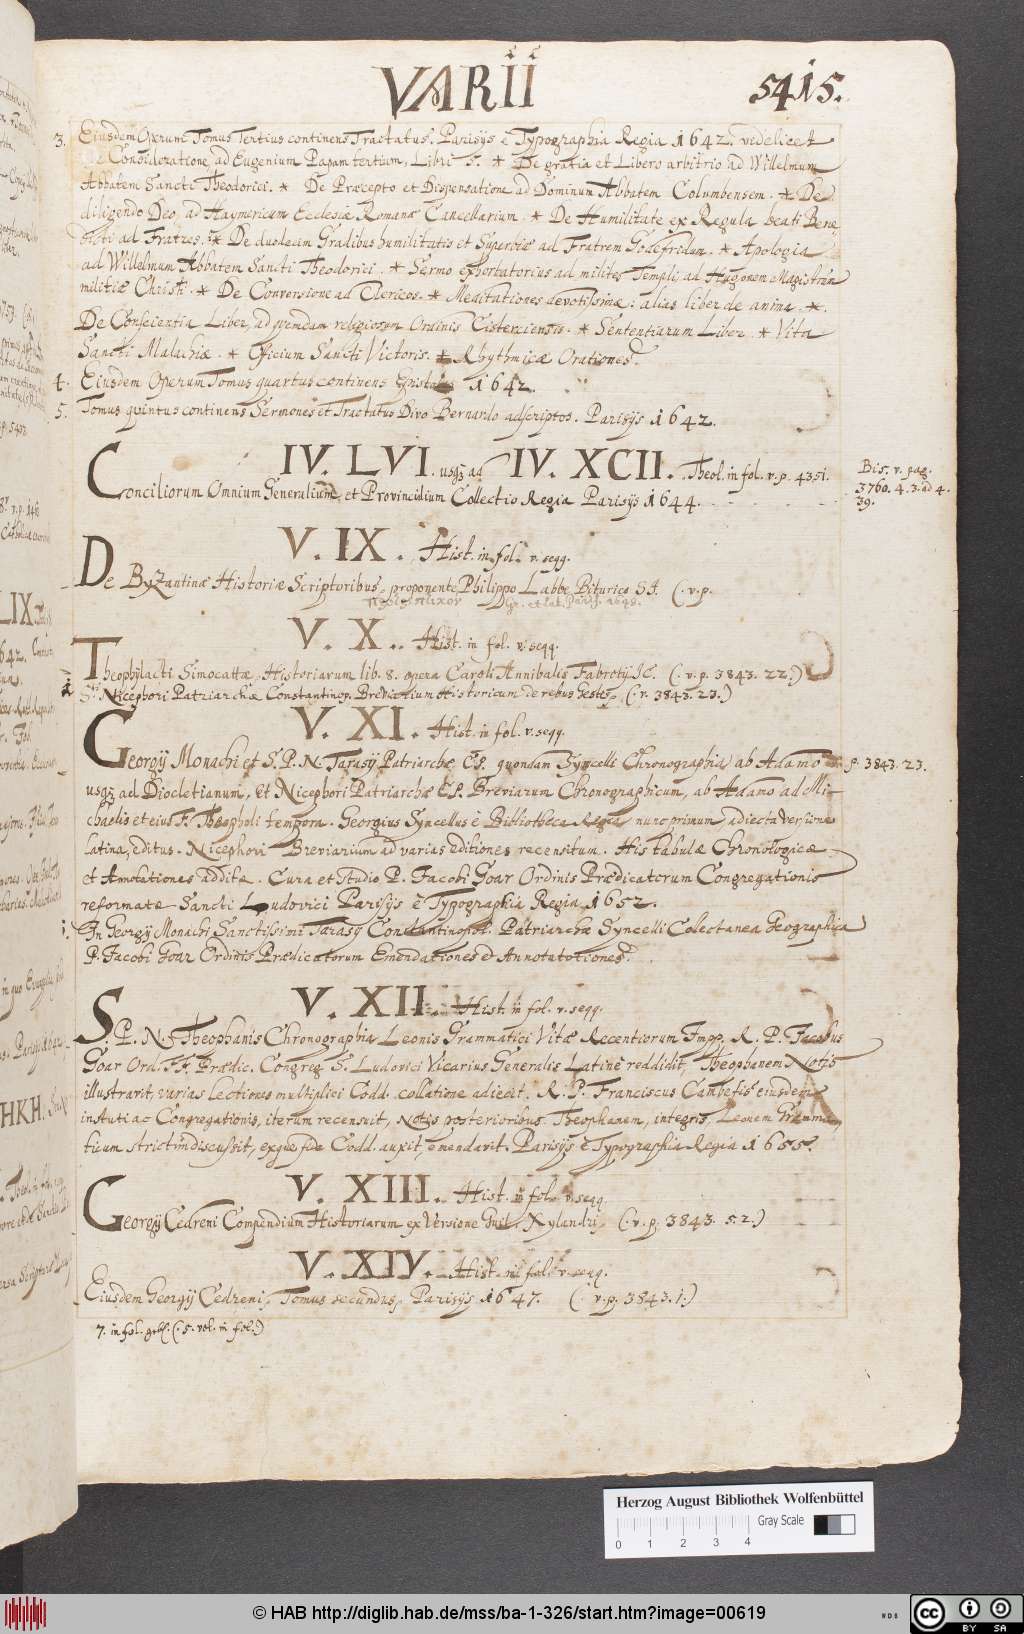 VARII 5415.
3. Eiusdem Operum Tomus Tertius continens Tractatus. Parisijs è Typographia Regia 1642. videlicet
De Consideratione ad Eugenium Papam tertium, Libri 5. * De gratia et Libero arbitrio ad Willelmum
Abbatem Sancti Theodorici. * De Præcepto et Dispensatione ad Dominum Abbatem Columbensem. * De
diligendo Deo, ad Haymericum Ecclesiæ Romanæ Cancellarium. * De Humilitate ex Regula beati Bene
dicti ad Fratres. * De duodecim Gradibus humilitatis et Superbiæ ad Fratrem Godefridum. * Apologia
ad Willelmum Abbatem Sancti Theodorici. * Sermo exhortatorius ad milites Templi, ad Hugonem Magistrum
militiæ Christi. * De Conversione ad Clericos. * Meditationes devotissimæ: alias liber de anima. *.
De Conscientia Liber, ad quendam religiosum Ordinis Cisterciensis. * Sententiarum Liber. * Vita
Sancti Malachiæ. * Officium Sancti Victoris. * Rhythmicæ Orationes.
4. Eiusdem Operum Tomus quartus continens Epistolas 1642.
5. Tomus quintus continens Sermones et Tractatus Divo Bernardo adscriptos. Parisijs 1642.
IV. LVI. usq; ad IV. XCII. Theol. in fol. v. p. 4351.
Bis. v. pag.
3760. 4. 3. ad 4.
39.
Conciliorum Omnium Generalium, et Provincialium Collectio Regia Parisijs 1644.
V. IX. Hist. in fol. v. seqq.
De Byzantinæ Historiæ Scriptoribus, proponente Philippo Labbe Biturico SJ. (. v. p.
V. X. Hist. in fol. v. seqq.
Theophylacti Simocattæ, Historiarum lib. 8. opera Caroli Annibalis Fabrotij JC. (. v. p. 3843. 22.)
1. S.ti Nicephori Patriarchæ Constantinop. Breviarium Historicum de rebus gestis, (. v. 3843. 23.)
V. XI. Hist. in fol. v. seqq.
Georgij Monachi et S. P. N. Tarasij Patriarchæ CP. quondam Syncelli Chronographia ab Adamo p. 3843. 23.
usq; ad Diocletianum, Et Nicephori Patriarchæ CP. Breviarum Chronographicum, ab Adamo ad Mi-
chaelis et eius F. Theophili tempora. Georgius Syncellus è Bibliotheca Regia nunc primum, adiecta versione
Latina, editus. Nicephori Breviarium ad varias editiones recensitum. His tabulæ Chronologicæ
et Annotationes additæ. Cura et Studio P. Jacobi Goar Ordinis Prædicatorum Congregationis
reformatæ Sancti Ludovici Parisijs è Typographia Regia 1652.
1. In Georgij Monachi Sanctissimi Tarasij Constantinopol. Patriarchæ Syncelli Colectanea Geographica
P. Jacobi Goar Ordinis Prædicatorum Emendationes et Annotationes.
V. XII. Hist. in fol. v. seqq.
S. P. N. Theophanis Chronographia Leonis Grammatici Vitæ Recentiorum Impp. R. P. Jacobus
Goar Ord. FF. Prædic. Congreg. S. Ludovici Vicarius Generalis Latinè reddidit, Theophanem Notis
illustravit, varias Lectiones multiplici Codd. collatione adiecit. R. P. Franciscus Combefis eiusdem
instituti ac Congregationis, iterum recensuit, Notis posterioribus Theophanem, integris, Leonem Gramma-
ticum strictim discussit, exque fide Codd. auxit, emendavit. Parisijs è Typographia Regia 1655.
V. XIII. Hist. in fol. v. seqq
Georgij Cedreni Compendium Historiarum ex Versione Guil. Xylandri, (. v. p. 3843. 52.)
V. XIV. Hist. in fol. v. seqq.
Eiusdem Georgij Cedreni, Tomus secundus, Parisijs 1647. (. v. p. 3843. 1.)
7. in fol. gebl. (. 5. vol. in fol.)
Herzog August Bibliothek Wolfenbüttel
0 1 2 3 4 Gray Scale
© HAB http://diglib.hab.de/mss/ba-1-326/start.htm?image=00619
WDB
cc BY SA